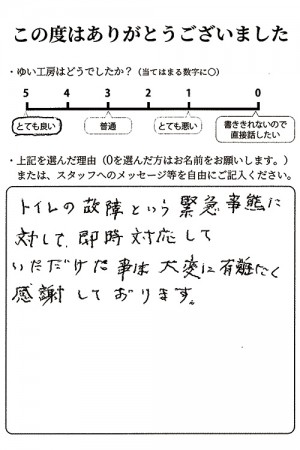 この度はありがとうございました
・ゆい工房はどうでしたか？（当てはまる数字に〇）
5 4 3 2 1 0
とても良い 普通 とても悪い 書ききれないので
直接話したい
・上記を選んだ理由（0を選んだ方はお名前をお願いします。）
または、スタッフへのメッセージ等を自由にご記入ください。
トイレの故障という緊急事態に
対して、即時対応して
いただけた事は大変に有難たく
感謝しております。